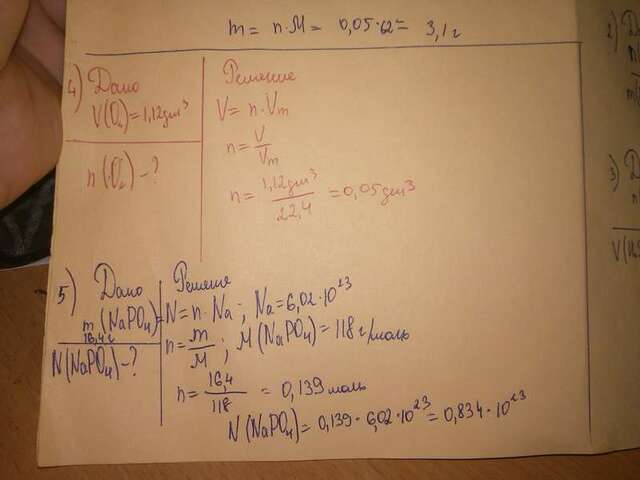 m = n·M = 0,05·62 = 3,1 г
4) Дано
V(O₂)=1,12дм³
n(O₂)-?
Решение
V = n·Vm
n = V/Vm
n = 1,12дм³/22,4 = 0,05дм³
5) Дано
m(NaPO₄)=
16,4 г
N(NaPO₄)-?
Решение
N = n·Na; Na = 6,02·10²³
n = m/M; M(NaPO₄) = 118 г/моль
n = 16,4/118 = 0,139 моль
N(NaPO₄) = 0,139·6,02·10²³ = 0,834·10²³
2) Да
3) Да
n